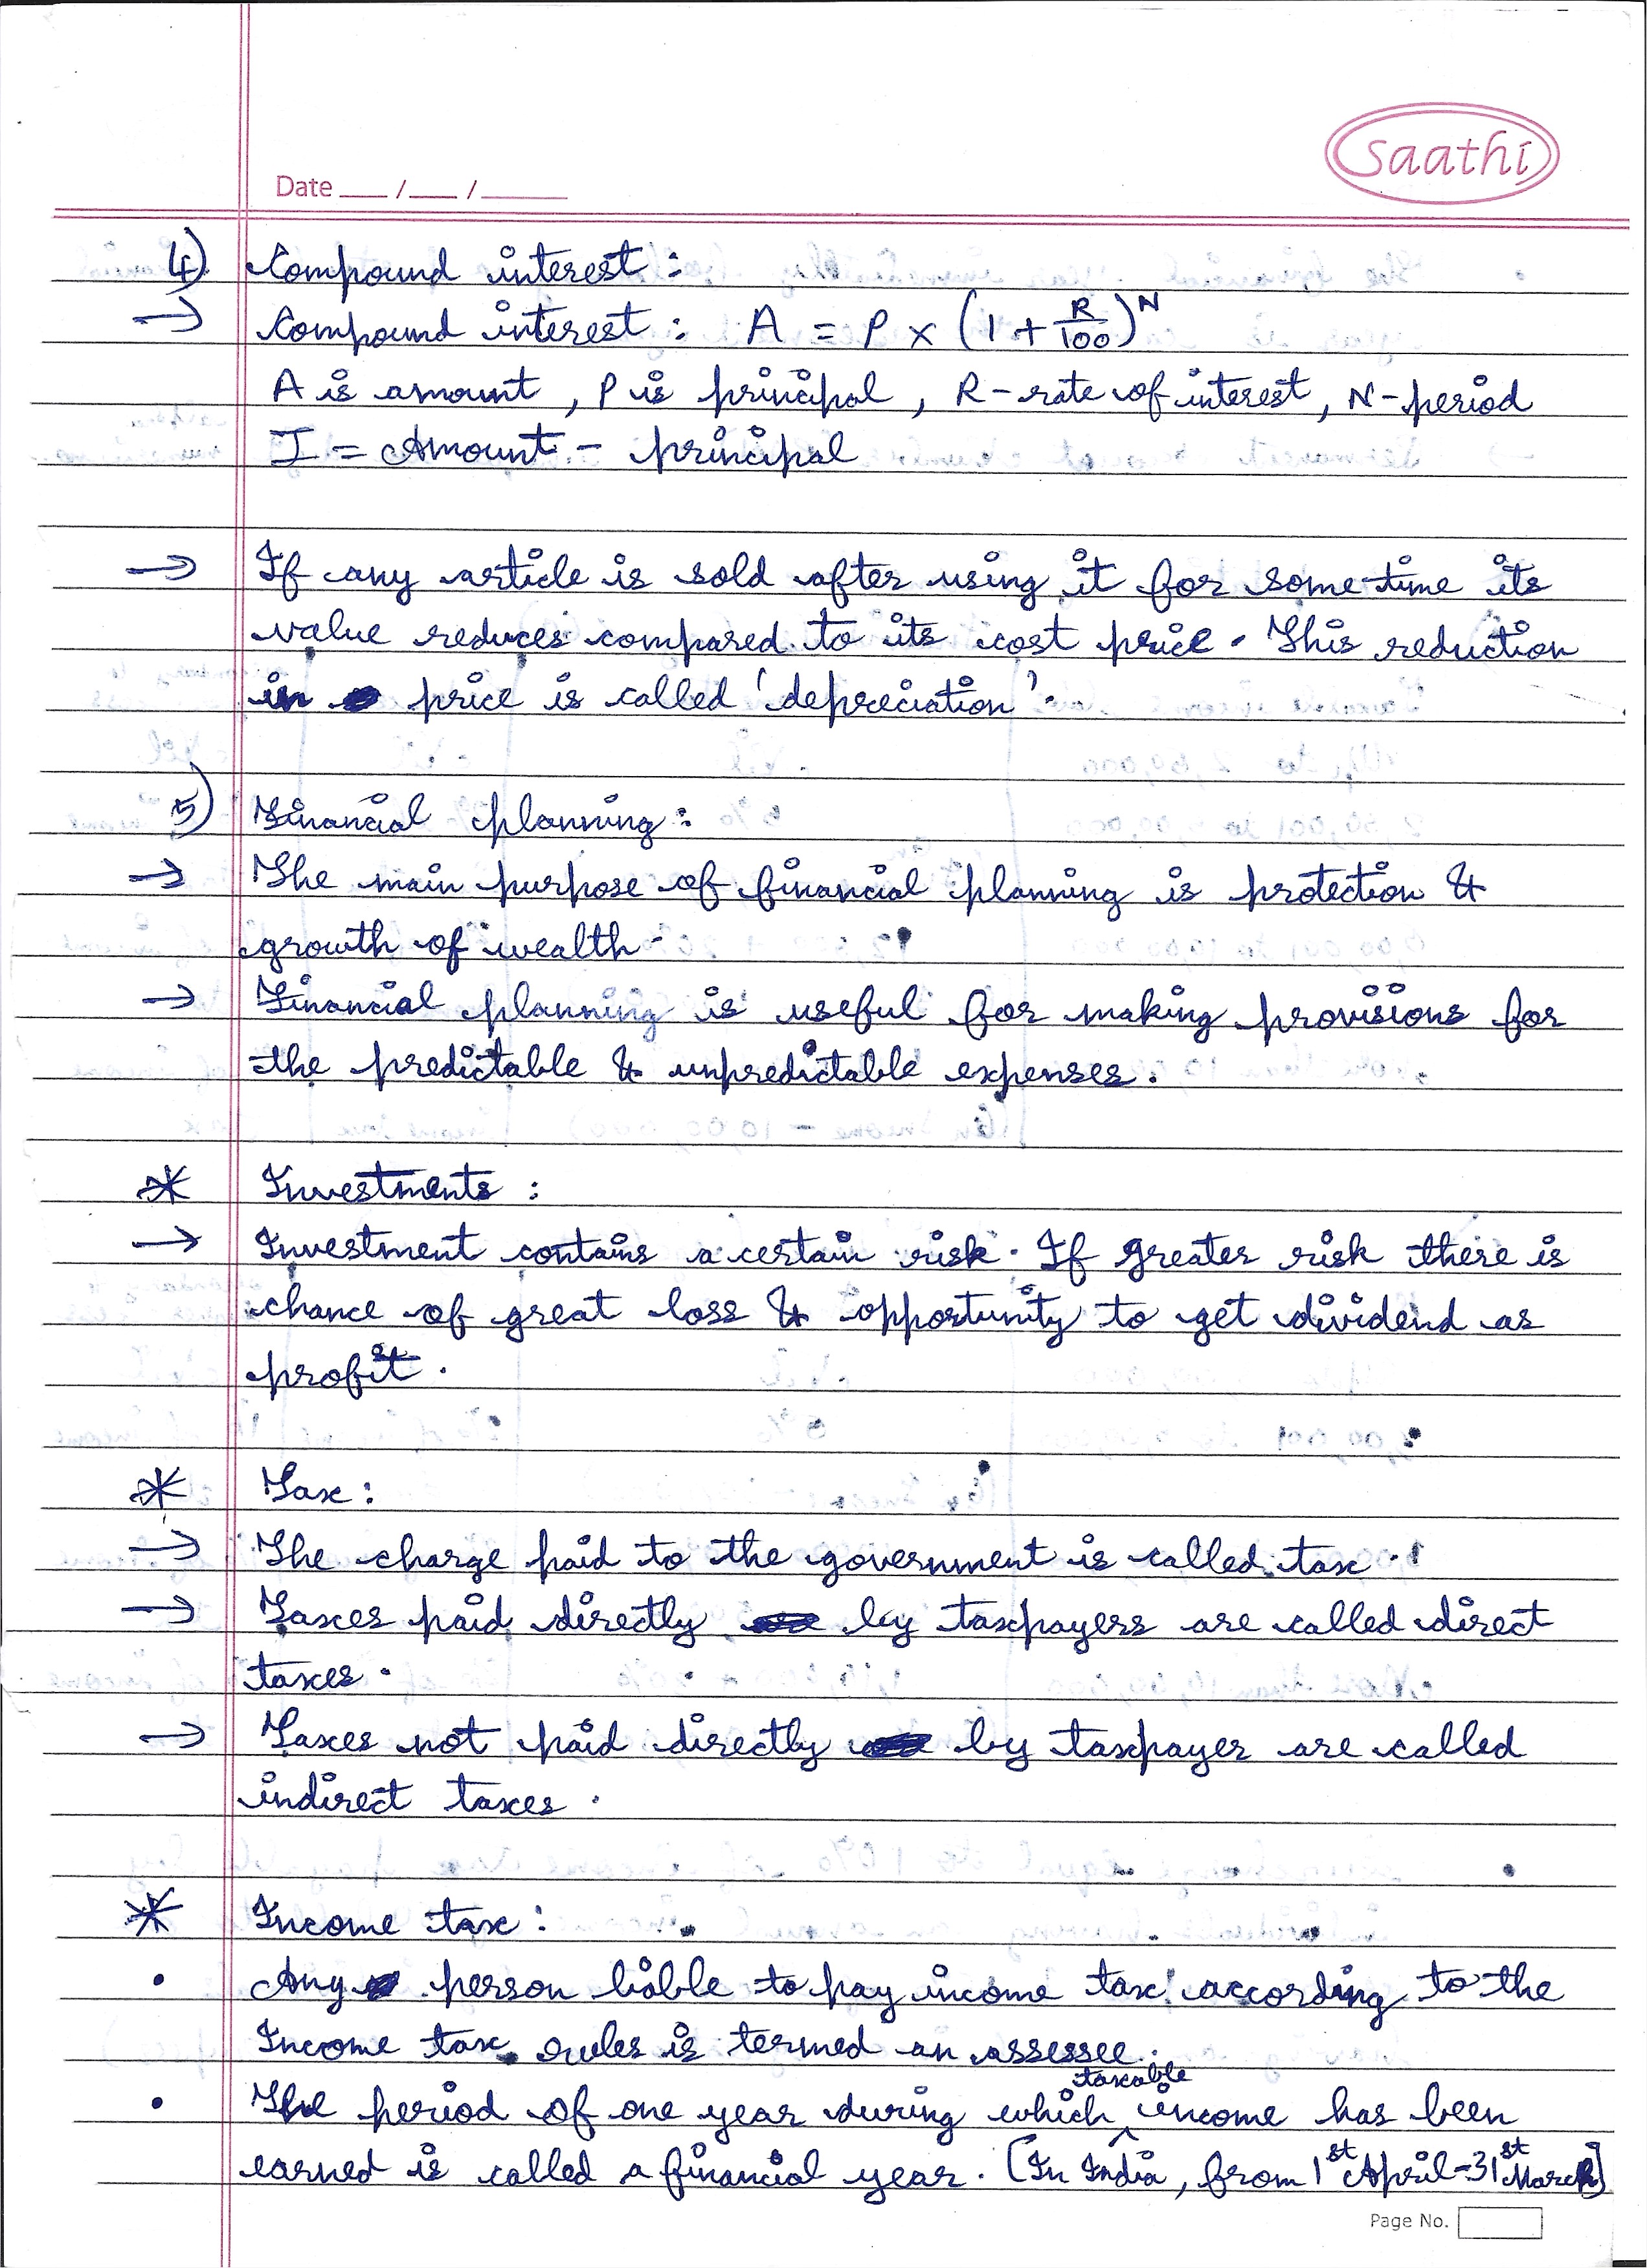 saathi
Date ___/___/______
4) Compound interest :
→ Compound interest : A = P × (1 + R/100)^N
A is amount , P is principal , R - rate of interest , N - period
I = Amount - principal
→ If any article is sold after using it for some time its
value reduces compared to its cost price . This reduction
in price is called 'depreciation' .
5) Financial planning :
→ The main purpose of financial planning is protection &
growth of wealth .
→ Financial planning is useful for making provisions for
the predictable & unpredictable expenses .
* Investments :
→ Investment contains a certain risk . If greater risk there is
chance of great loss & opportunity to get dividend as
profit .
* Tax :
→ The charge paid to the government is called tax .
→ Taxes paid directly by taxpayers are called direct
taxes .
→ Taxes not paid directly by taxpayer are called
indirect taxes .
* Income tax :
• Any person liable to pay income tax according to the
Income tax rules is termed an assessee .
• The period of one year during which taxable income has been
earned is called a financial year . [In India , from 1st April - 31st March]
Page No.